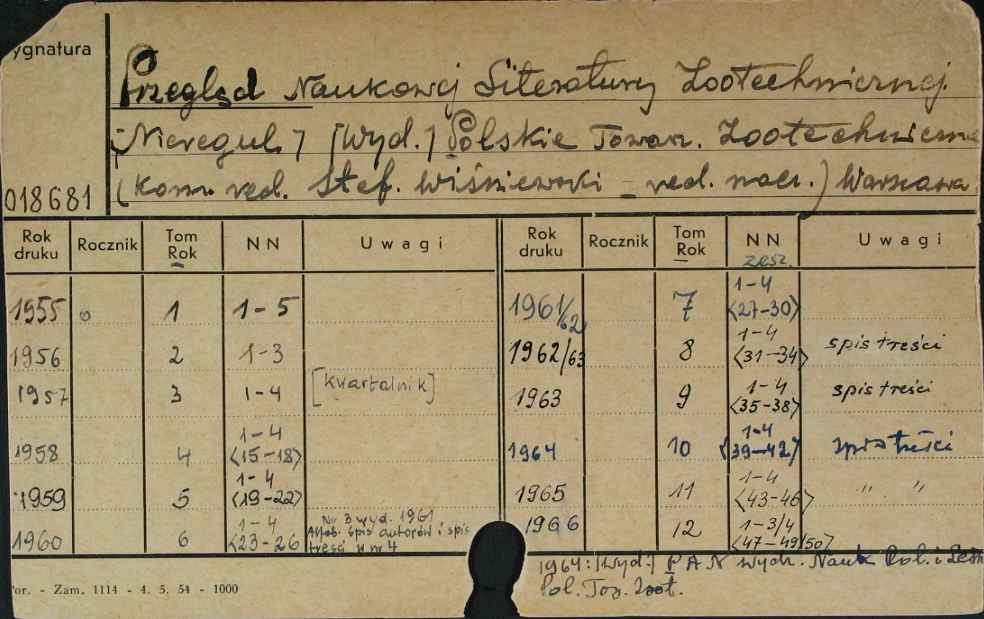 ygnatura
Przegląd Naukowej Literatury Zootechnicznej.
[Nieregul.] [Wyd.] Polskie Towarz. Zootechniczne
018681 (Kom. red. Stef. Wiśniewski – red. nacz.) Warszawa
Rok druku Rocznik Tom Rok NN Uwagi Rok druku Rocznik Tom Rok NN zesz. Uwagi
1955 1 1-5 1961/62 7 1-4 <27-30>
1956 2 1-3 1962/63 8 1-4 <31-34> spis treści
1957 3 1-4 [kwartalnik] 1963 9 1-4 <35-38> spis treści
1958 4 1-4 <15-18> 1964 10 1-4 <39-42> spis treści
1959 5 1-4 <19-22> 1965 11 1-4 <43-46> " "
1960 6 1-4 <23-26 Nr 3 wyd. 1961 Alfab. spis autorów i spis treści w nr 4 1966 12 1-3/4 <47-49/50>
1964: [Wyd.] PAN Wydz. Nauk Rol. i Leśn
Pol. Tow. Zoot.
or. - Zam. 1114 - 4. 5. 54 - 1000